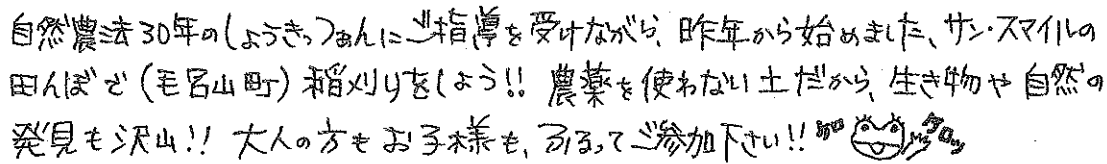 自然農法30年の(しょうきっつぁん)にご指導を受けながら、昨年から始めました、サン・スマイルの
田んぼで(毛呂山町)稲刈りをしよう!! 農薬を使わない土だから、生き物や自然の
発見も沢山!! 大人の方もお子様も、ふるってご参加下さい!! ケロ ケロッ